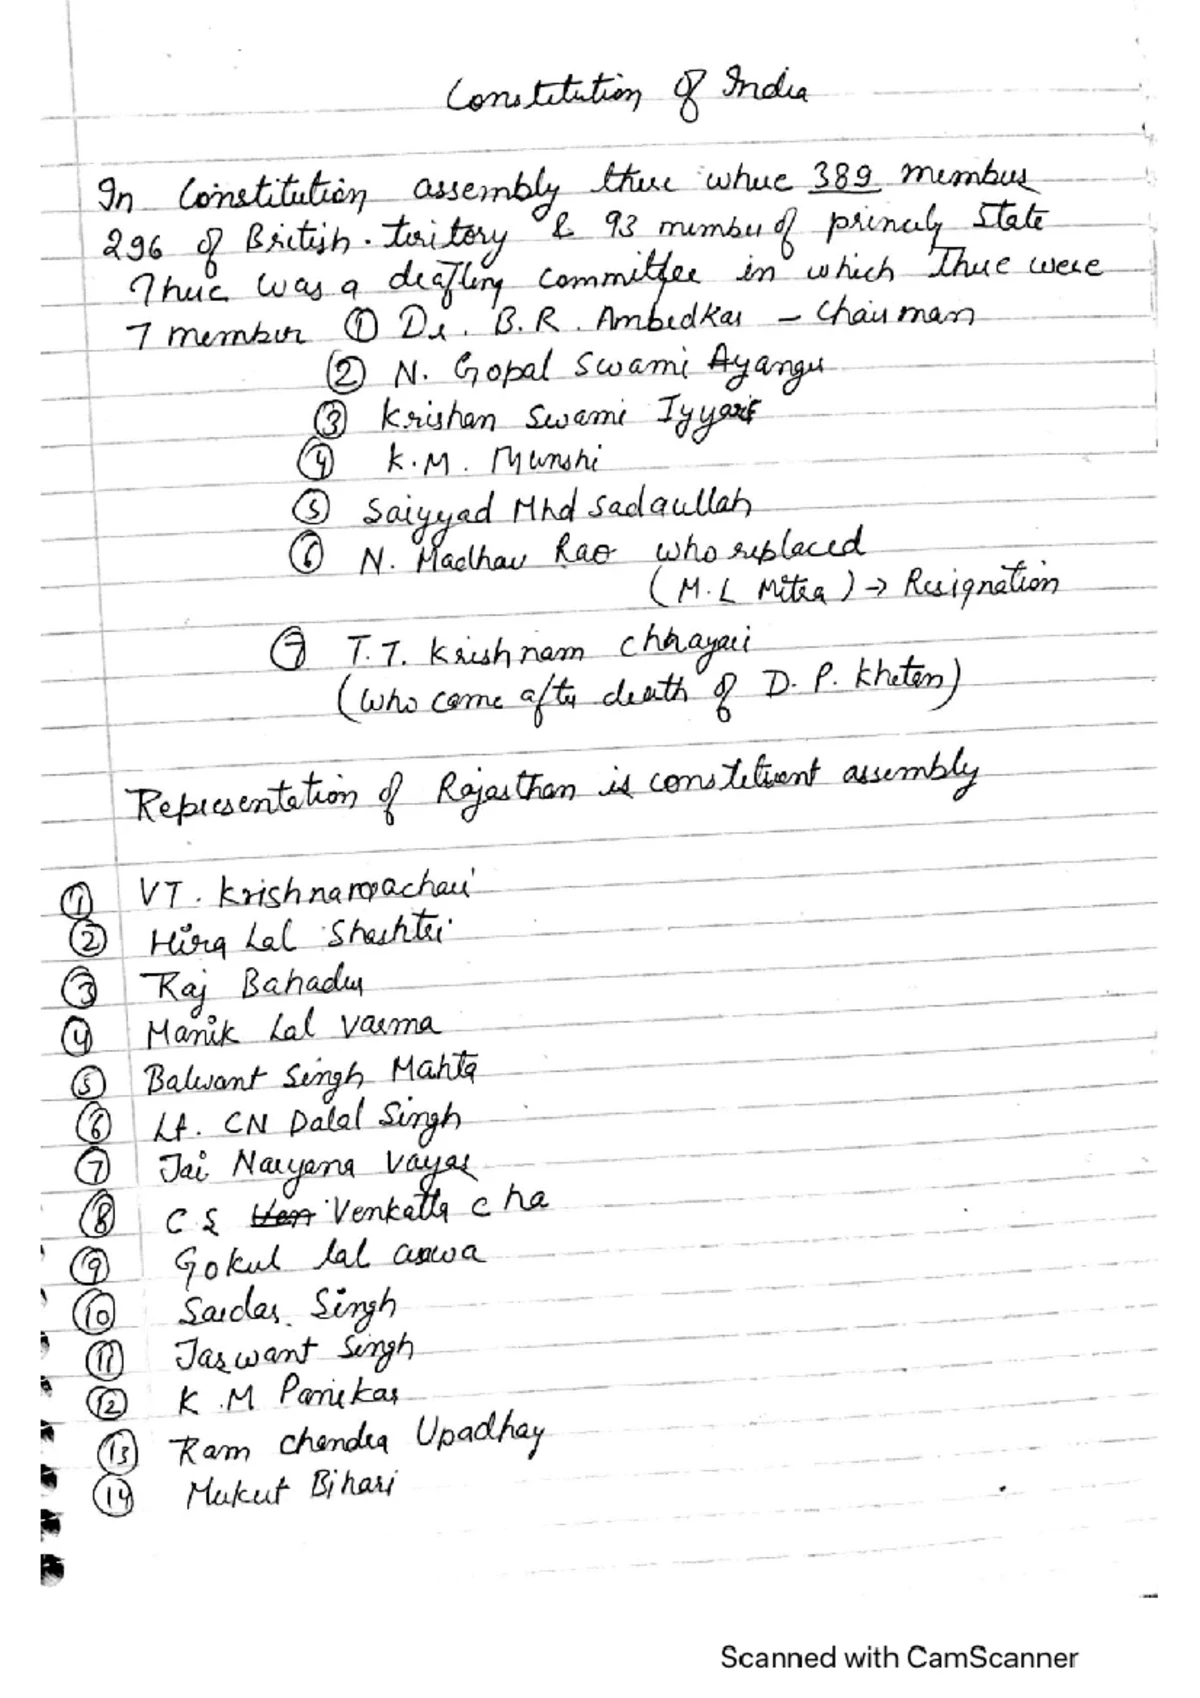 Constitution of India
In Constitution assembly there where 389 members
296 of British. teritory & 93 member of princely State
There was a drafting committee in which There were
7 member ① Dr. B.R. Ambedkar - Chairman
② N. Gopal Swami Ayanger
③ Krishan Swami Iyyar
④ K.M. Munshi
⑤ Saiyyad Mhd Sadaullah
⑥ N. Madhav Rao who replaced
(M.L Mitra) → Resignation
⑦ T.T. Krishnam Chhayari
(who come after death of D.P. Khetan)
Representation of Rajasthan is constetuent assembly
① VT. Krishnamachari
② Hira Lal Shashtri
③ Raj Bahadur
④ Manik Lal Varma
⑤ Balwant Singh Mahta
⑥ Lt. CN Dalal Singh
⑦ Jai Naryana Vayas
⑧ C S Venkatta cha
⑨ Gokul lal aswa
⑩ Sardar Singh
⑪ Jaswant Singh
⑫ K.M Panikar
⑬ Ram Chandra Upadhay
⑭ Mukut Bihari
Scanned with CamScanner